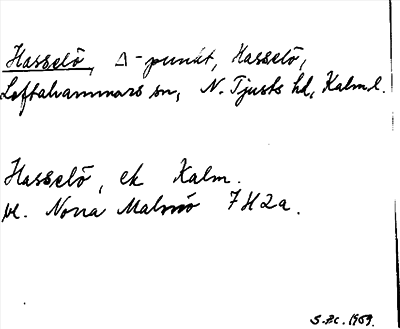 Hasselö, Δ-punkt, Hasselö,
Loftahammars sn, N. Tjusts hd, Kalm l.
Hasselö, ek Kalm.
bl. Norra Malmö 7H2a.
1959.